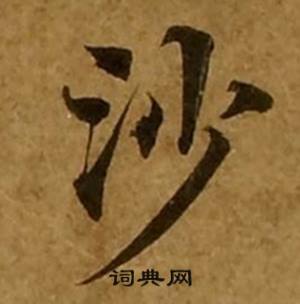 沙
词典网